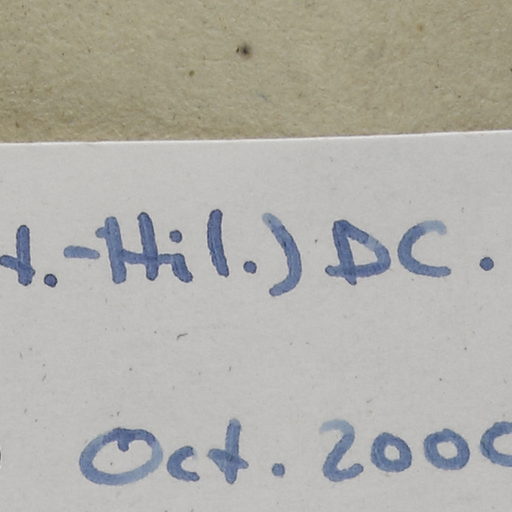 t.-Hil.) DC.
Oct. 2000